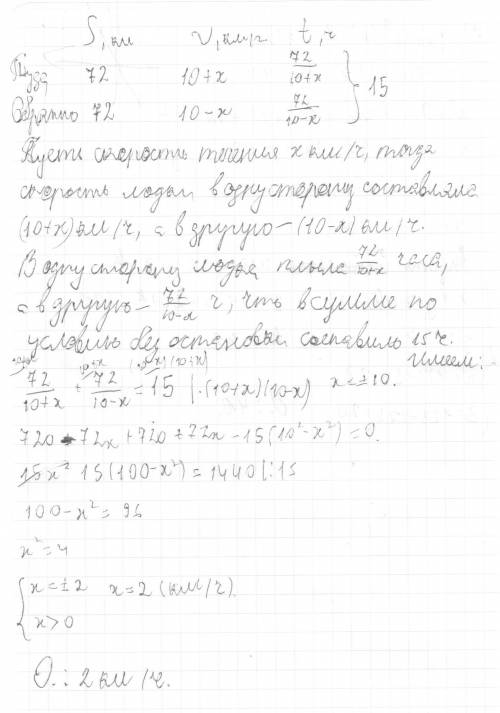 S, км v, км/ч t, ч
Туда 72 10+x 72/(10+x)
Обратно 72 10-x 72/(10-x) } 15
Пусть скорость течения x км/ч, тогда
скорость лодки в одну сторону составляла
(10+x) км/ч, а в другую - (10-x) км/ч.
В одну сторону лодка плыла 72/(10+x) часа,
а в другую - 72/(10-x) ч, что в сумме по
условию без остановки составило 15 ч.
Имеем:
72/(10+x) + 72/(10-x) = 15 |·(10+x)(10-x) x ≠ ±10.
720 - 72x + 720 + 72x - 15(10²-x²) = 0.
15x² 15(100-x²) = 1440 |:15
100-x² = 96
x² = 4
{ x = ±2 x = 2 (км/ч)
x > 0
О.: 2 км/ч.